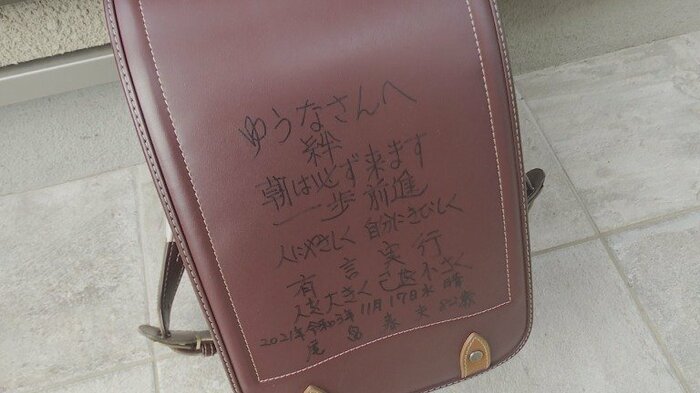 ゆうなさんへ
絆
朝は必ず来ます
一歩 前進
人にやさしく 自分にきびしく
有言実行
人は大きく己は小さく
2021年令和3年11月17日水 晴
尾畠春夫 82歳